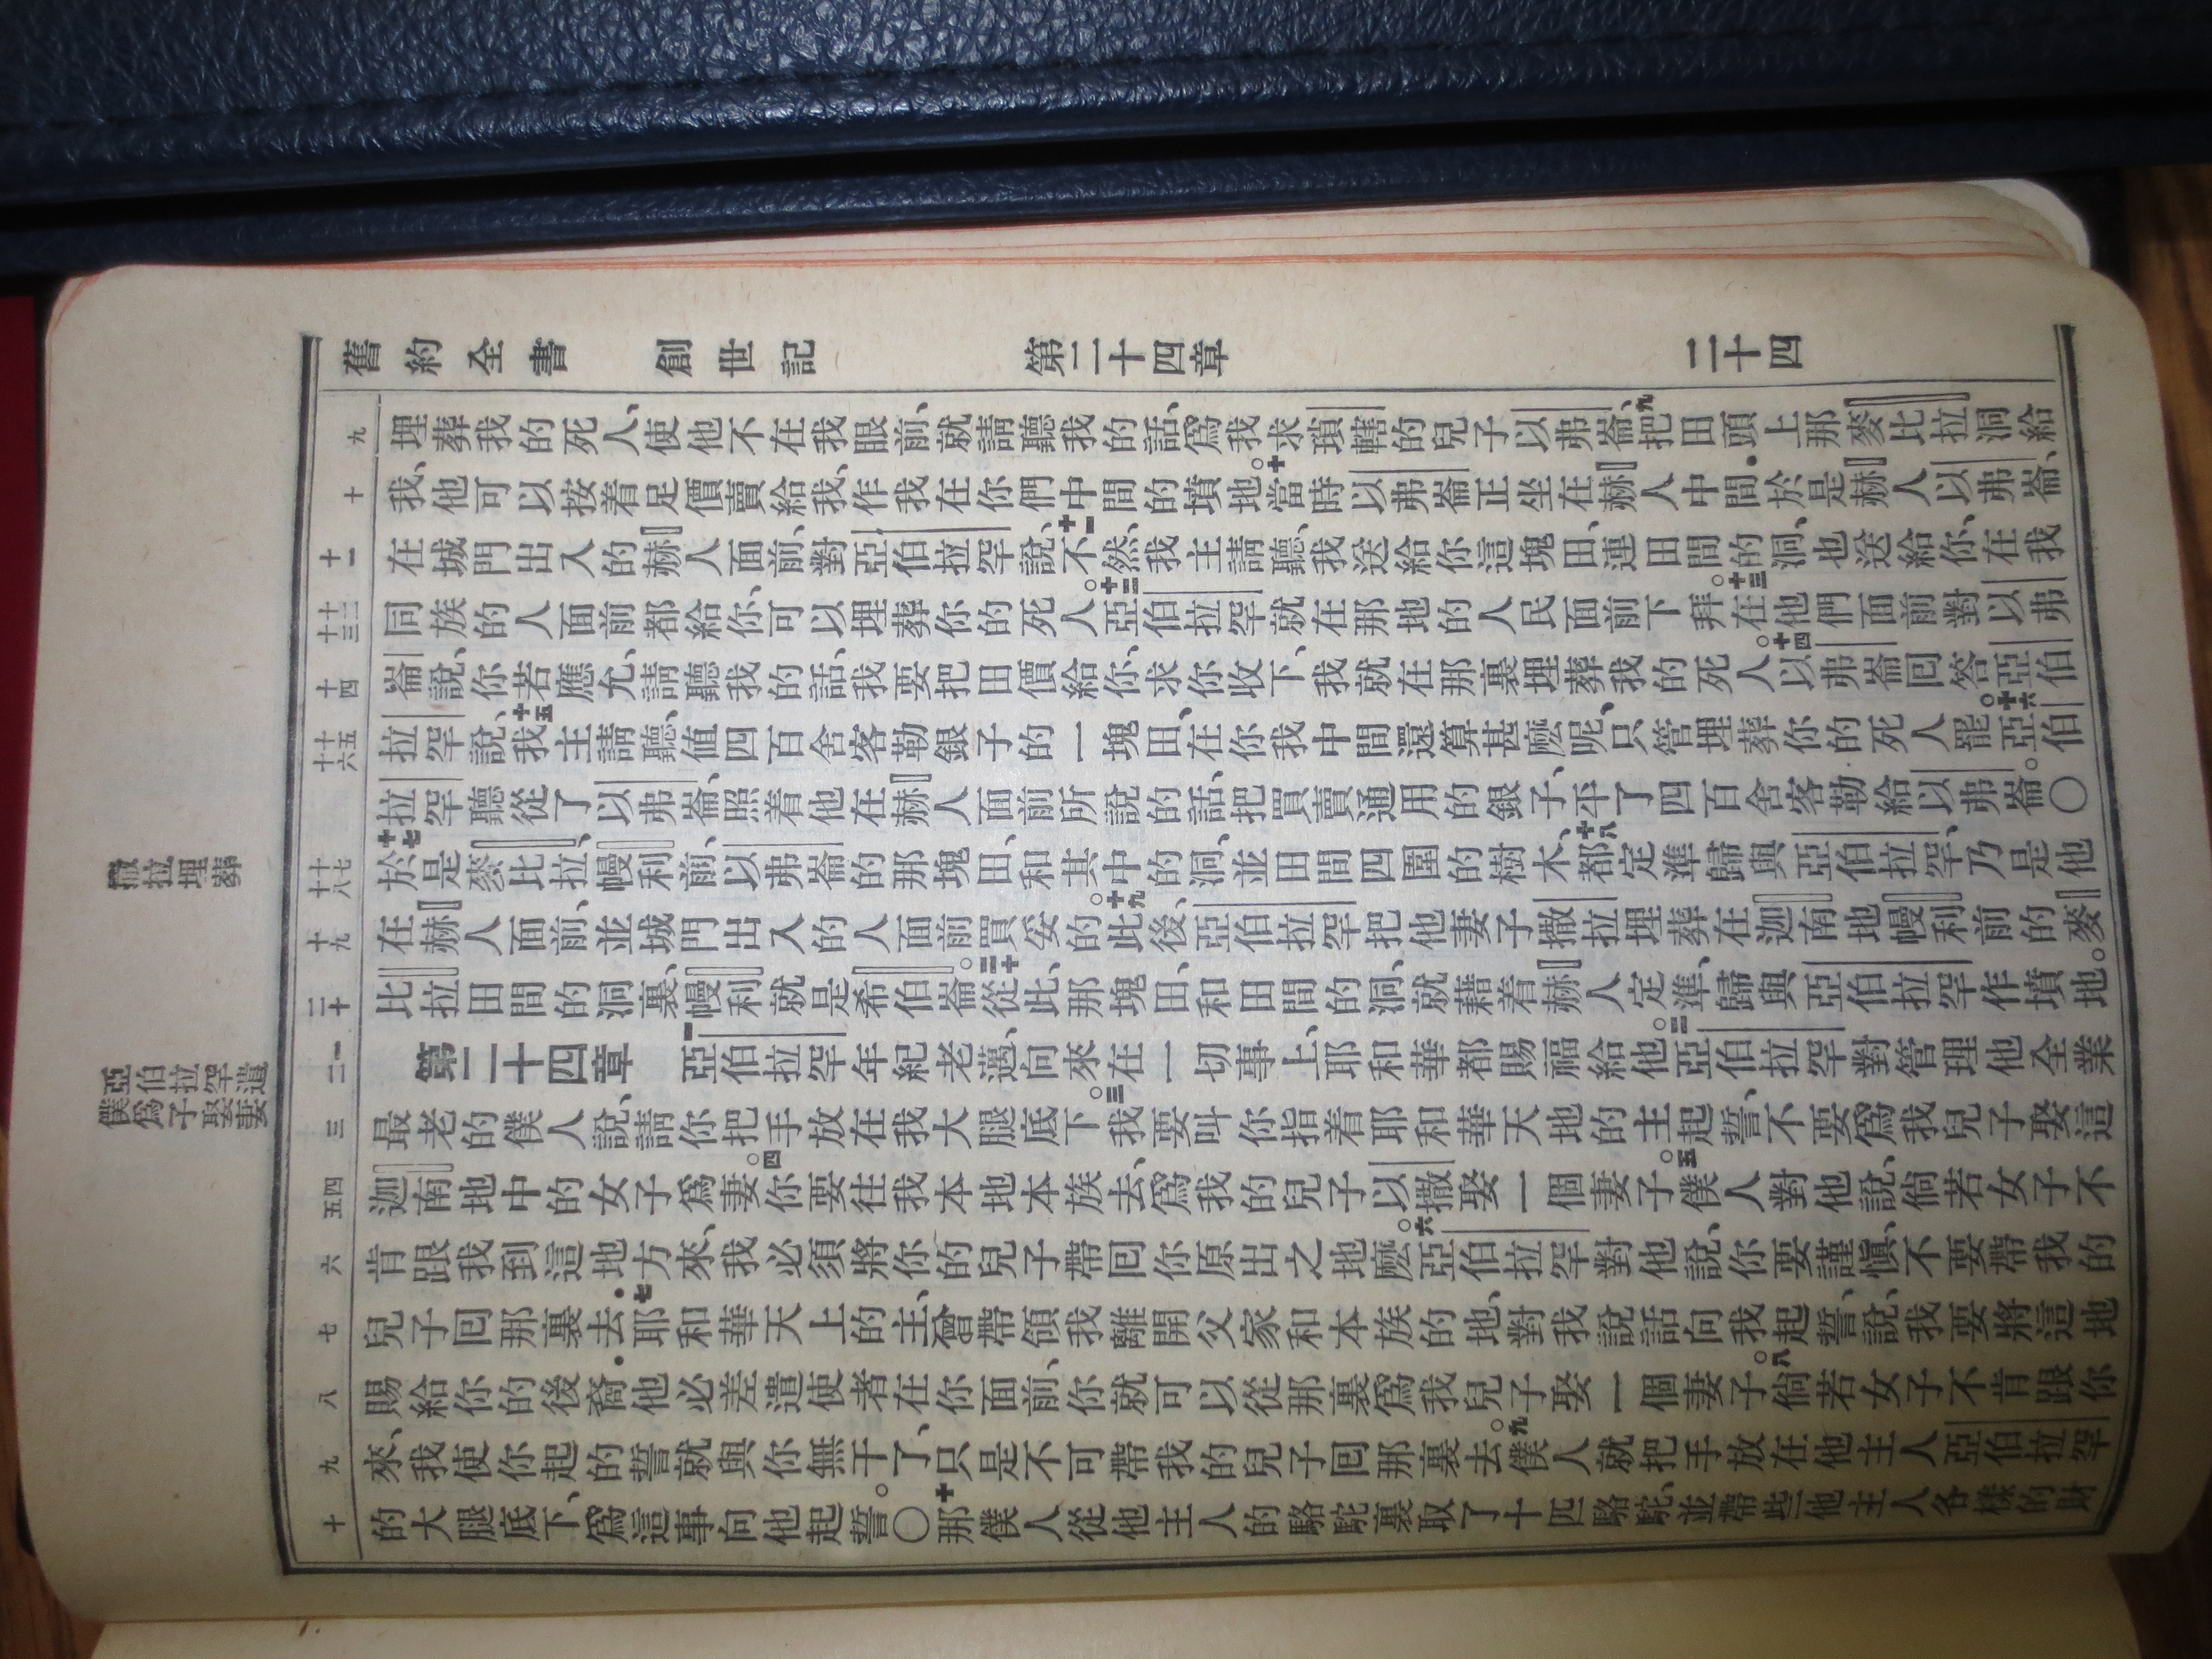 舊約全書　創世記　第二十四章　二十四
撒拉埋葬
亞伯拉罕遣
僕爲子娶妻
九
十
十一
十二
十三
十四
十五
十六
十七
十八
十九
二十
一
二
三
四
五
六
七
八
九
十
埋葬我的死人、使他不在我眼前、就請聽我的話、爲我求瑣轄的兒子以弗崙、九把田頭上那麥比拉洞給
我、他可以按着足價賣給我、作我在你們中間的墳地。十當時以弗崙正坐在赫人中間．於是赫人以弗崙、
在城門出入的赫人面前、對亞伯拉罕說、十一不然、我主請聽、我送給你這塊田、連田間的洞、也送給你、在我
同族的人面前都給你、可以埋葬你的死人。十二亞伯拉罕就在那地的人民面前下拜。十三在他們面前對以弗
崙說、你若應允、請聽我的話、我要把田價給你、求你收下、我就在那裏埋葬我的死人。十四以弗崙回答亞伯
拉罕說、十五我主請聽、值四百舍客勒銀子的一塊田、在你我中間還算甚麽呢、只管埋葬你的死人罷。十六亞伯
拉罕聽從了以弗崙、照着他在赫人面前所說的話、把買賣通用的銀子、平了四百舍客勒給以弗崙。〇
十七於是麥比拉、幔利前、以弗崙的那塊田、和其中的洞、並田間四圍的樹木、十八都定準歸與亞伯拉罕、乃是他
在赫人面前、並城門出入的人面前買妥的。十九此後、亞伯拉罕把他妻子撒拉埋葬在迦南地幔利前的麥
比拉田間的洞裏、幔利就是希伯崙。二十從此、那塊田、和田間的洞、就藉着赫人定準、歸與亞伯拉罕作墳地。
第二十四章　一亞伯拉罕年紀老邁、向來在一切事上、耶和華都賜福給他。二亞伯拉罕對管理他全業
最老的僕人說、請你把手放在我大腿底下。三我要叫你指着耶和華天地的主起誓、不要爲我兒子娶這
迦南地中的女子爲妻。四你要往我本地本族去、爲我的兒子以撒娶一個妻子。五僕人對他說、倘若女子不
肯跟我到這地方來、我必須將你的兒子帶回你原出之地麽。六亞伯拉罕對他說、你要謹愼、不要帶我的
兒子回那裏去．七耶和華天上的主、曾帶領我離開父家和本族的地、對我說話向我起誓、說、我要將這地
賜給你的後裔．他必差遣使者在你面前、你就可以從那裏爲我兒子娶一個妻子。八倘若女子不肯跟你
來、我使你起的誓就與你無干了、只是不可帶我的兒子回那裏去。九僕人就把手放在他主人亞伯拉罕
的大腿底下、爲這事向他起誓。〇十那僕人從他主人的駱駝裏取了十匹駱駝、並帶些他主人各樣的財